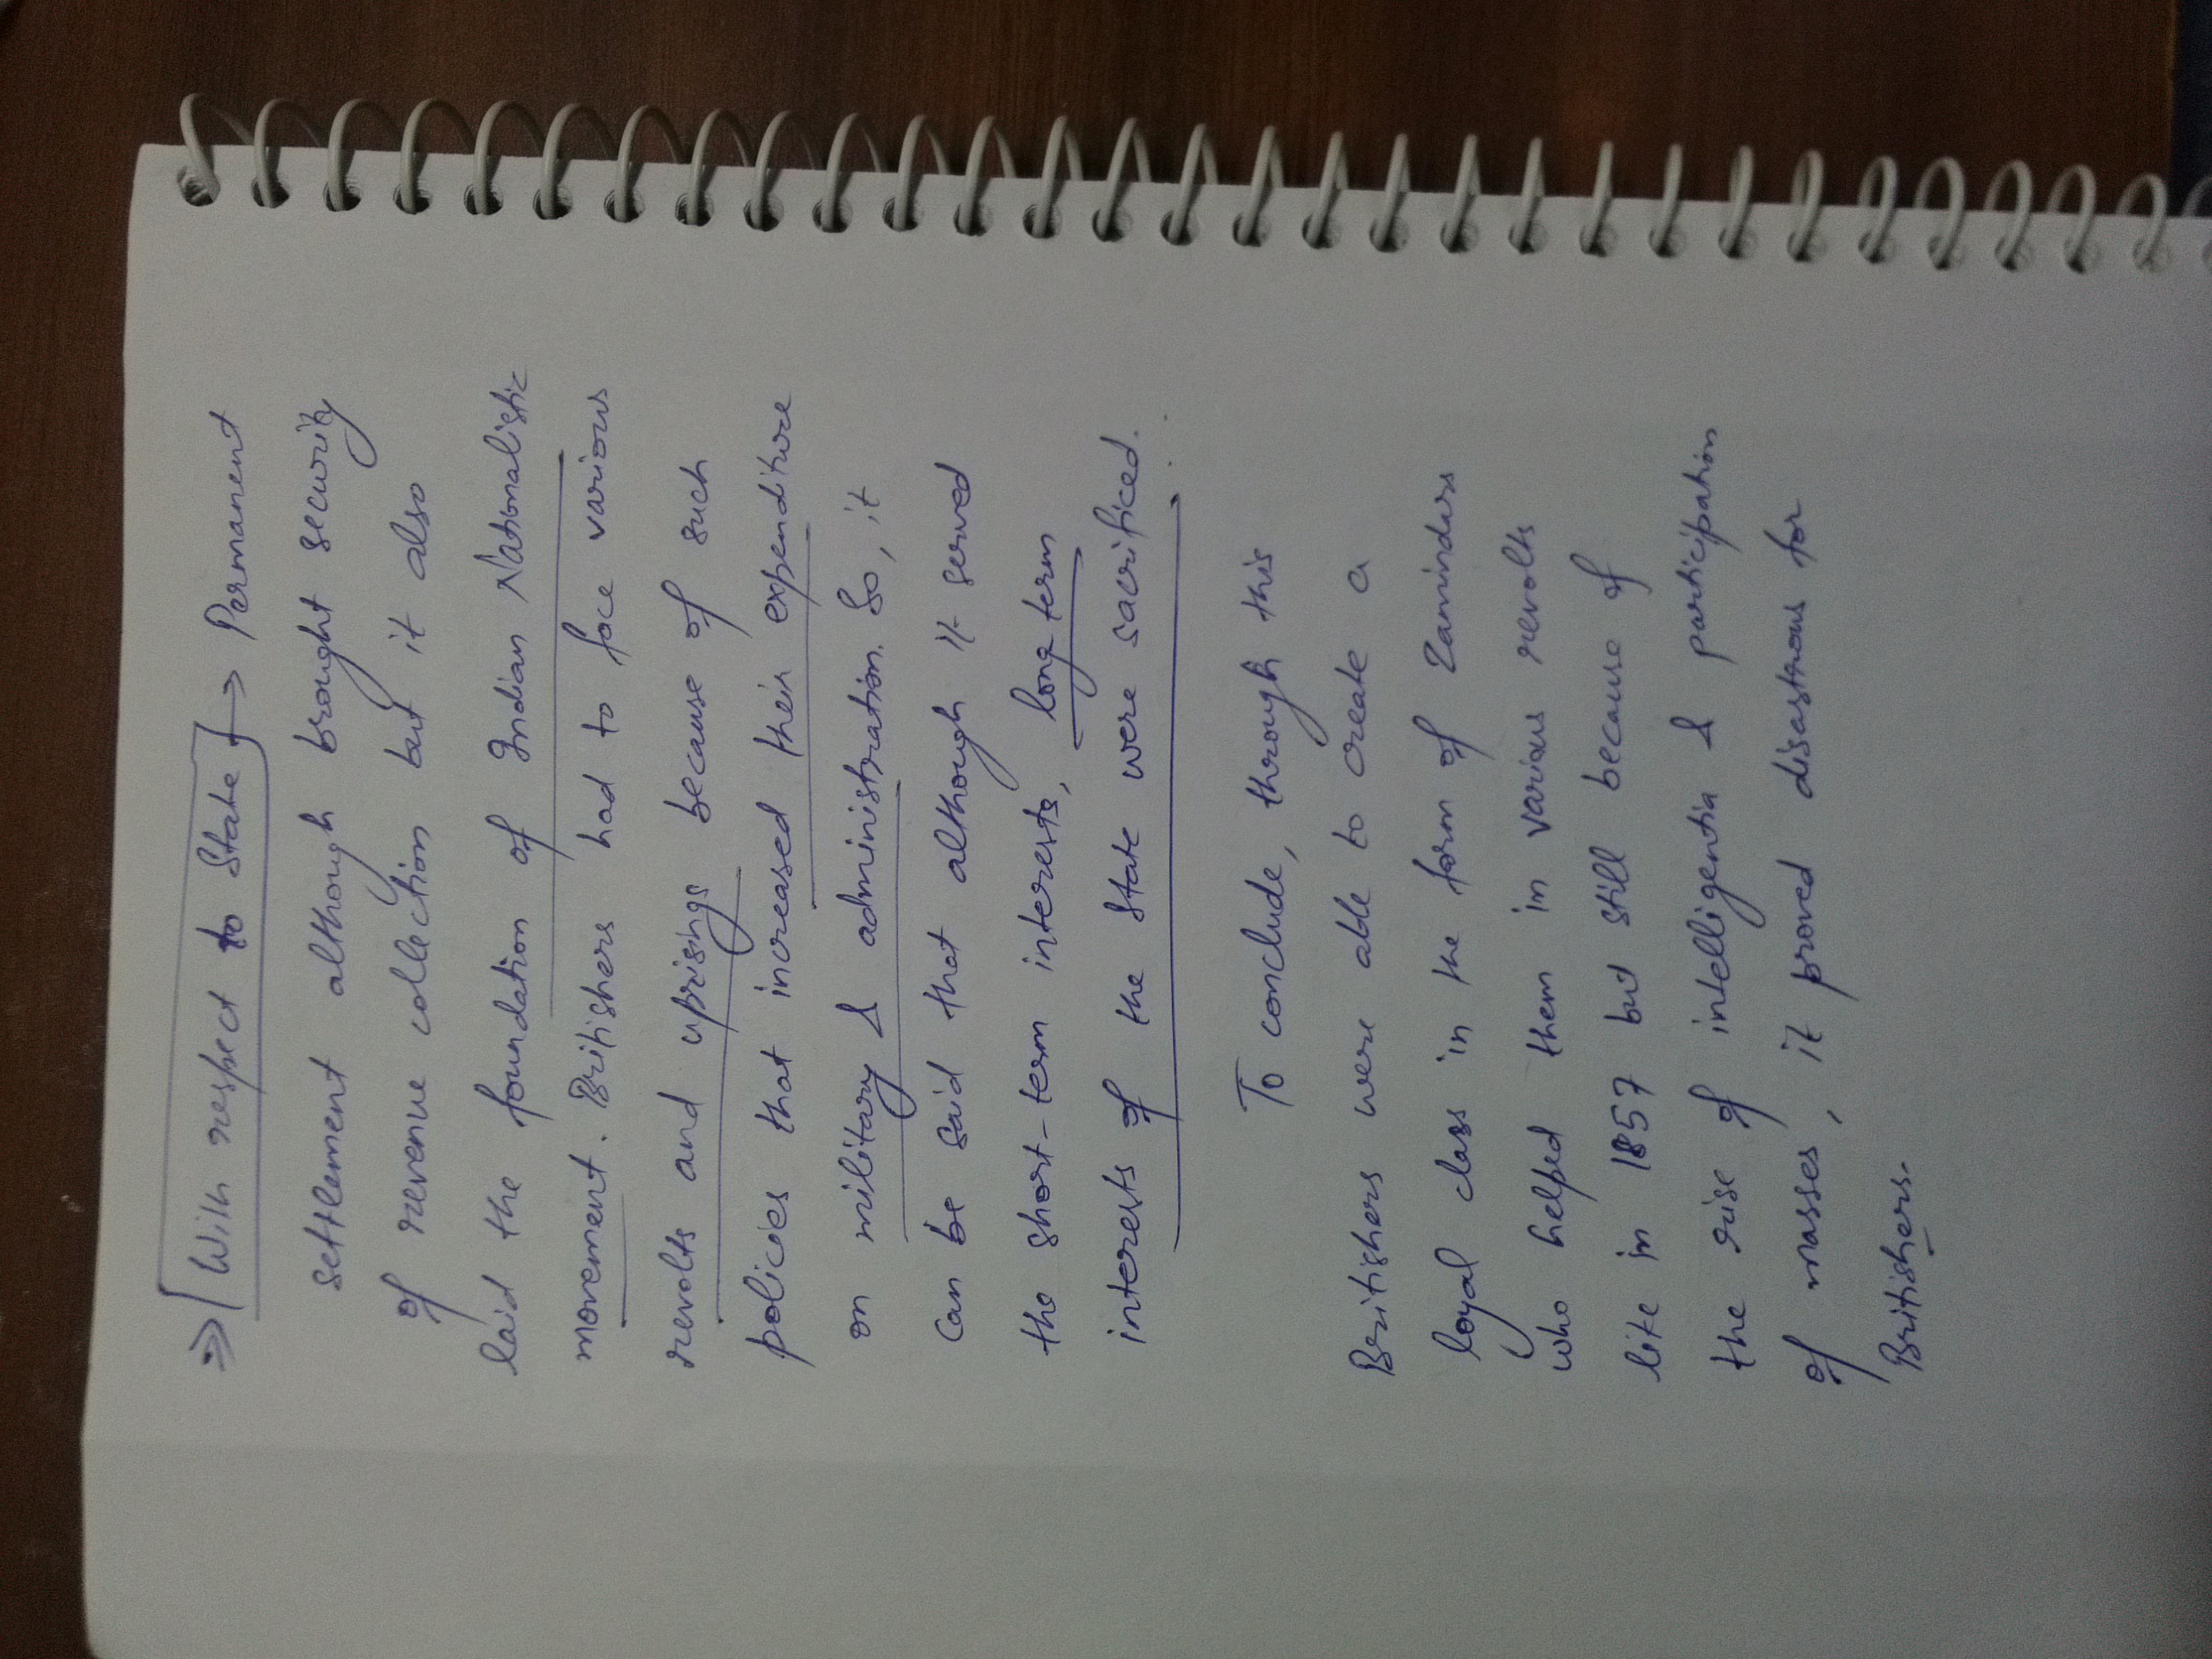 ⇒ [With respect to State] → Permanent
settlement although brought security
of revenue collection but it also
laid the foundation of Indian Nationalistic
movement. Britishers had to face various
revolts and uprisings because of such
policies that increased their expenditure
on military & administration. So, it
can be said that although it served
the short-term interests, long term
interests of the State were sacrificed.
To conclude, through this
Britishers were able to create a
loyal class in the form of Zamindars
who helped them in various revolts
like in 1857 but still because of
the rise of intelligentia & participation
of masses, it proved disastrous for
Britishers.